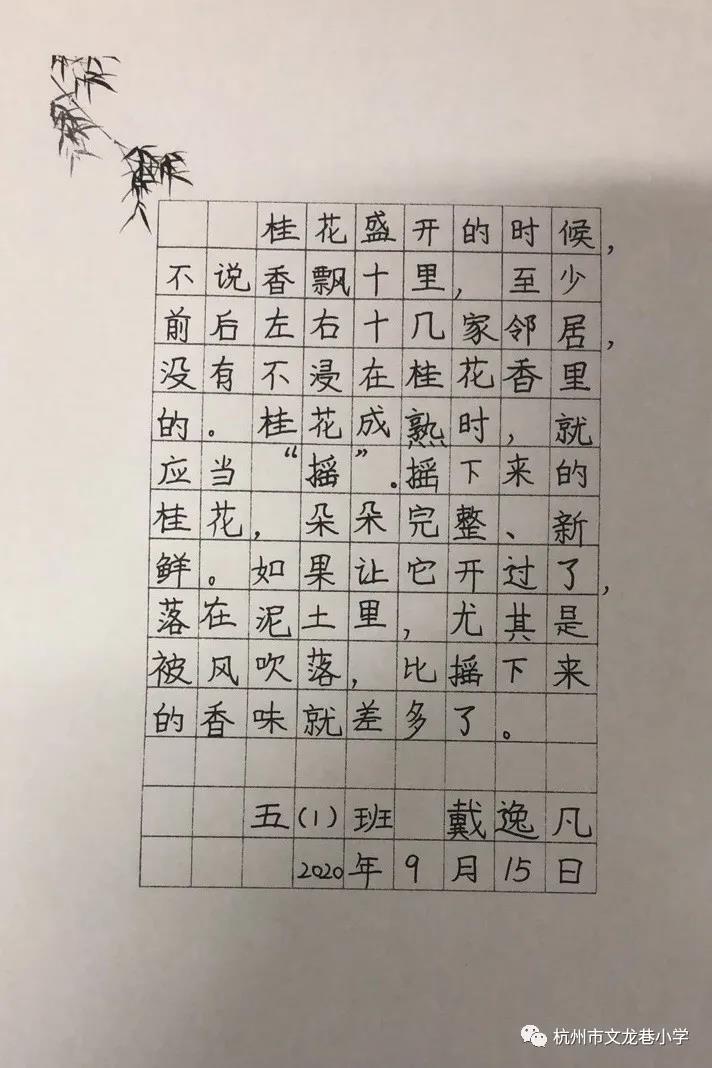 桂花盛开的时候,
不说香飘十里,至少
前后左右十几家邻居,
没有不浸在桂花香里
的。桂花成熟时,就
应当“摇”.摇下来的
桂花,朵朵完整、新
鲜。如果让它开过了,
落在泥土里,尤其是
被风吹落,比摇下来
的香味就差多了。
五(1)班 戴逸凡
2020年9月15日
杭州市文龙巷小学